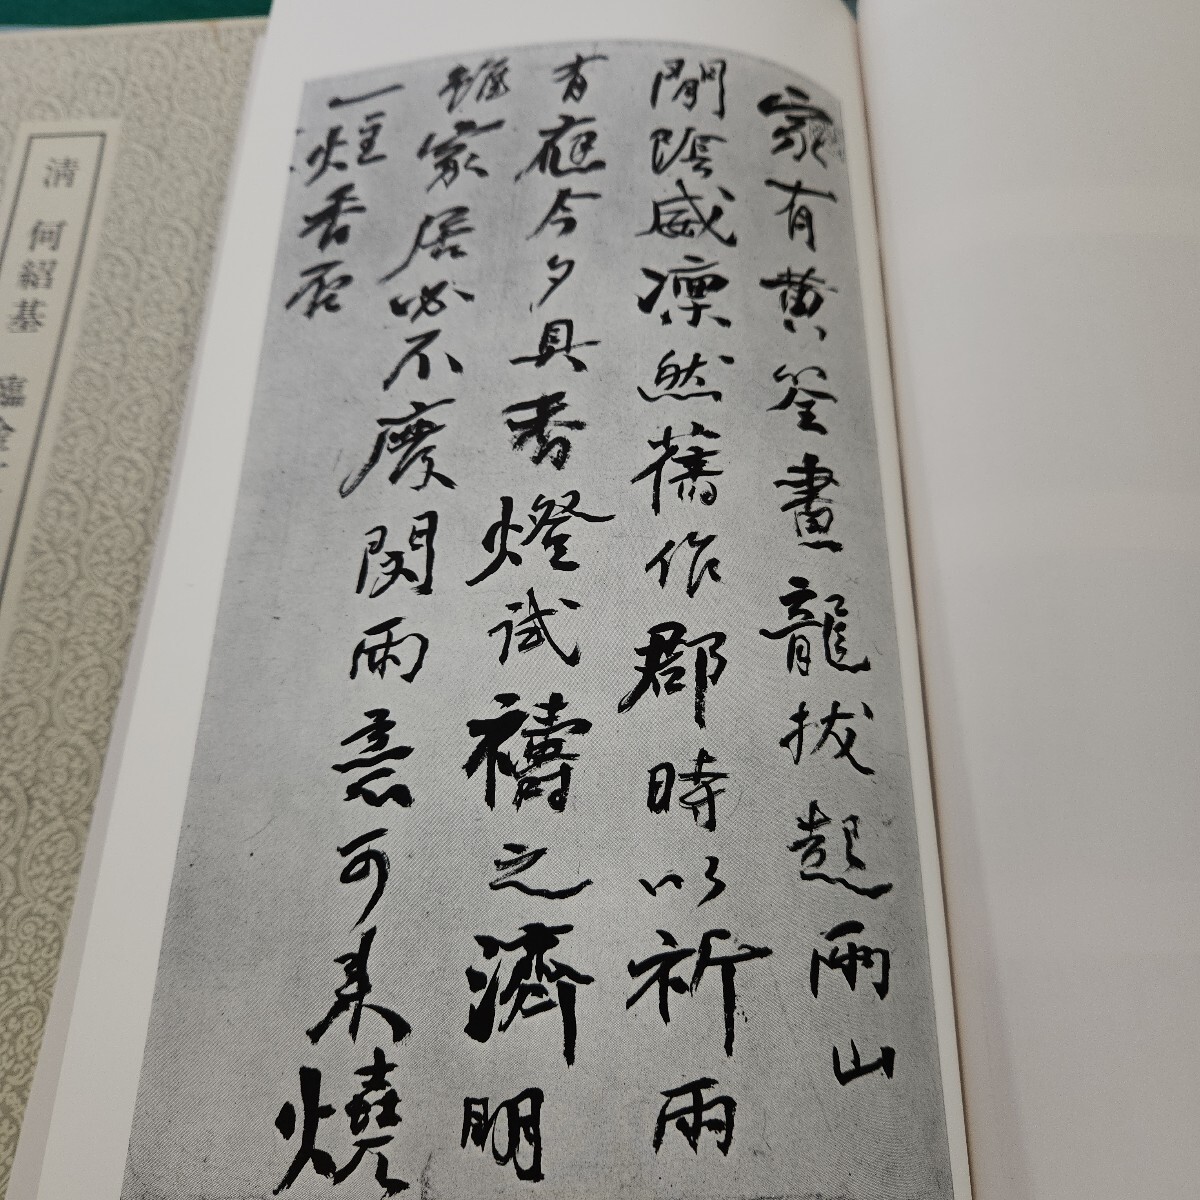 家有黄筌畫龍拔起兩山
間陰威凜然舊作郡時以祈雨
有應今夕具香燈試禱之濟明
雖家居必不廢閔雨意可来燒
一炷香否
清 何紹基 臨